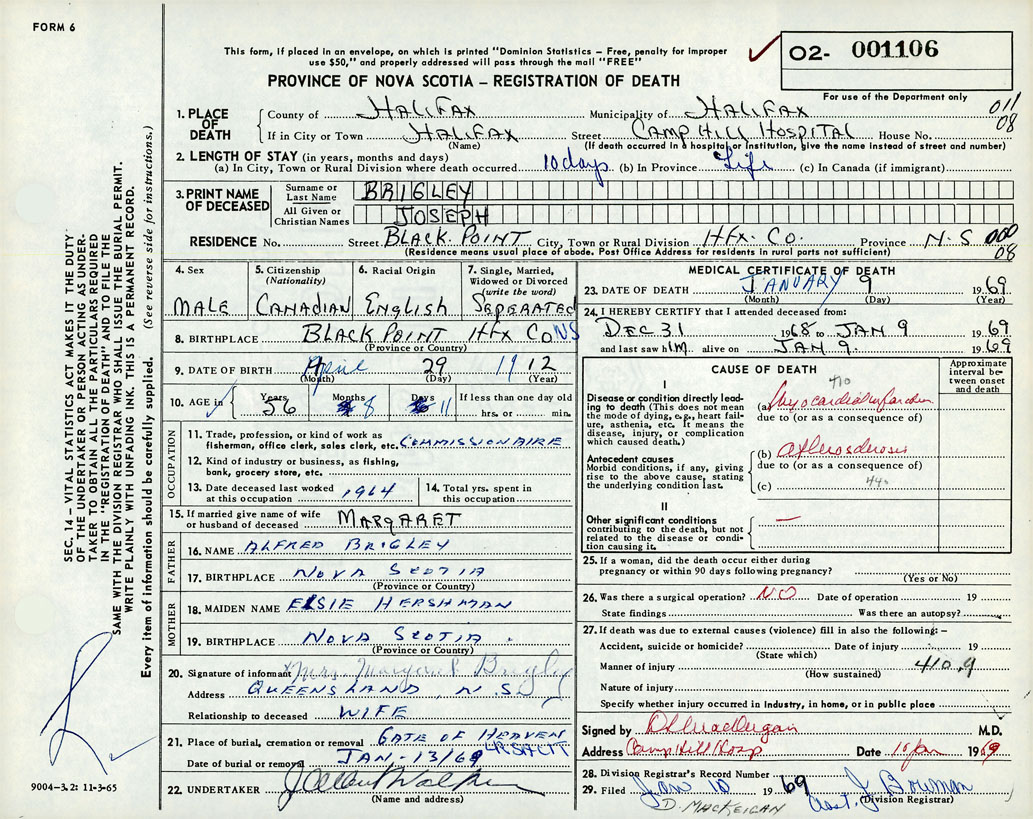 FORM 6
This form, if placed in an envelope, on which is printed "Dominion Statistics – Free, penalty for improper
use $50," and properly addressed will pass through the mail "FREE"
O2- 001106
PROVINCE OF NOVA SCOTIA – REGISTRATION OF DEATH
For use of the Department only
1. PLACE OF DEATH County of HALIFAX Municipality of HALIFAX 011
If in City or Town HALIFAX Street CAMP HILL HOSPITAL House No. 08
(Name) (If death occurred in a hospital or institution, give the name instead of street and number)
2. LENGTH OF STAY (in years, months and days)
(a) In City, Town or Rural Division where death occurred 10 days (b) In Province Life (c) In Canada (if immigrant)
3. PRINT NAME OF DECEASED Surname or Last Name BRIGLEY
All Given or Christian Names JOSEPH
RESIDENCE No. Street BLACK POINT City, Town or Rural Division Hfx. Co. Province N.S 000
(Residence means usual place of abode. Post Office Address for residents in rural parts not sufficient) 08
4. Sex MALE
5. Citizenship (Nationality) CANADIAN
6. Racial Origin English
7. Single, Married, Widowed or Divorced (write the word) SEPERATED
8. BIRTHPLACE BLACK POINT Hfx Co NS
(Province or Country)
9. DATE OF BIRTH April 29 1912
(Month) (Day) (Year)
10. AGE in Years 56 Months 8 Days 11 If less than one day
hrs. or min.
OCCUPATION
11. Trade, profession, or kind of work as
fisherman, office clerk, sales clerk, etc. COMMISSIONAIRE
12. Kind of industry or business, as fishing,
bank, grocery store, etc.
13. Date deceased last worked at this occupation 1964
14. Total yrs. spent in this occupation
15. If married give name of wife
or husband of deceased MARGARET
FATHER
16. NAME ALFRED BRIGLEY
17. BIRTHPLACE NOVA SCOTIA
(Province or Country)
MOTHER
18. MAIDEN NAME ELSIE HERSHMAN
19. BIRTHPLACE NOVA SCOTIA
(Province or Country)
20. Signature of informant Mrs. Margaret Brigley
Address QUEENSLAND, N.S.
Relationship to deceased WIFE
21. Place of burial, cremation or removal GATE OF HEAVEN
Date of burial or removal JAN-13/69
22. UNDERTAKER
(Name and address)
MEDICAL CERTIFICATE OF DEATH
23. DATE OF DEATH JANUARY 9 1969
(Month) (Day) (Year)
24. I HEREBY CERTIFY that I attended deceased from:
DEC 31 1968 to JAN 9 1969
and last saw him alive on JAN 9. 1969
CAUSE OF DEATH
Approximate interval between onset and death
I
Disease or condition directly leading
to death (This does not mean
the mode of dying, e.g., heart failure,
asthenia, etc. It means the
disease, injury, or complication
which caused death.)
410
(a) Myocardial infarction
due to (or as a consequence of)
Antecedent causes
Morbid conditions, if any, giving
rise to the above cause, stating
the underlying condition last.
(b) atherosclerosis
due to (or as a consequence of)
(c) 440
II
Other significant conditions
contributing to the death, but not
related to the disease or condition
causing it. —
25. If a woman, did the death occur either during
pregnancy or within 90 days following pregnancy?
(Yes or No)
26. Was there a surgical operation? NO Date of operation 19
State findings Was there an autopsy?
27. If death was due to external causes (violence) fill in also the following: –
Accident, suicide or homicide? Date of injury 19
(State which)
Manner of injury 410.9
(How sustained)
Nature of injury
Specify whether injury occurred in industry, in home, or in public place
Signed by M.D.
Address Camp Hill Hosp Date 10 Jan 1969
28. Division Registrar's Record Number
29. Filed Jan 10 1969 Asst. J Bowman
D. MACKEIGAN (Division Registrar)
SEC. 14 – VITAL STATISTICS ACT MAKES IT THE DUTY
OF THE UNDERTAKER OR PERSON ACTING AS UNDER-
TAKER TO OBTAIN ALL THE PARTICULARS REQUIRED
IN THE "REGISTRATION OF DEATH" AND TO FILE THE
SAME WITH THE DIVISION REGISTRAR WHO SHALL ISSUE THE BURIAL PERMIT.
WRITE PLAINLY WITH UNFADING INK. THIS IS A PERMANENT RECORD.
Every item of information should be carefully supplied. (See reverse side for instructions.)
9004-3.2: 11-3-65